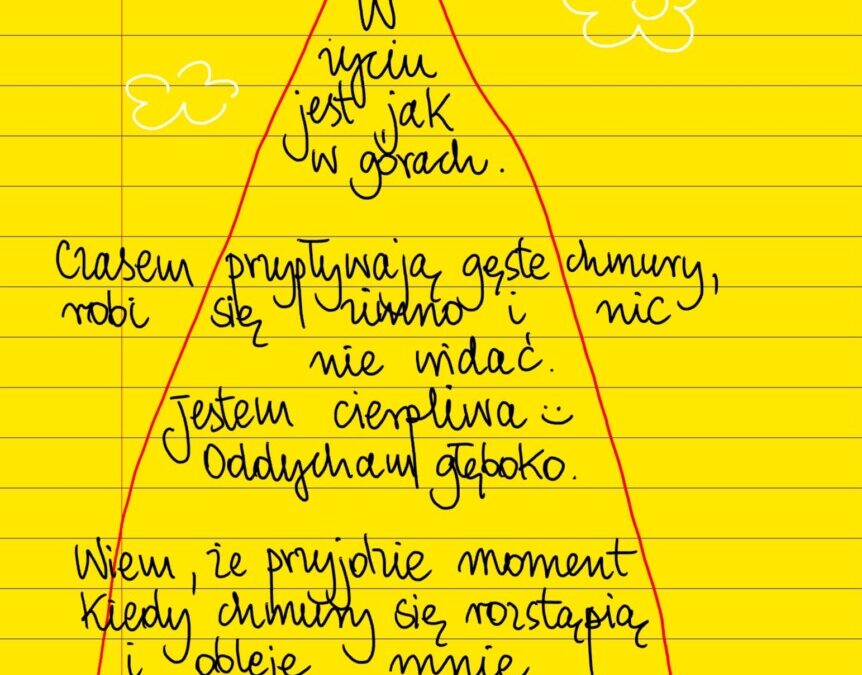 W
życiu
jest jak
w górach.
Czasem przypływają gęste chmury,
robi się zimno i nic
nie widać.
Jestem cierpliwa :)
Oddycham głęboko.
Wiem, że przyjdzie moment
Kiedy chmury się rozstąpią
i obleje mnie